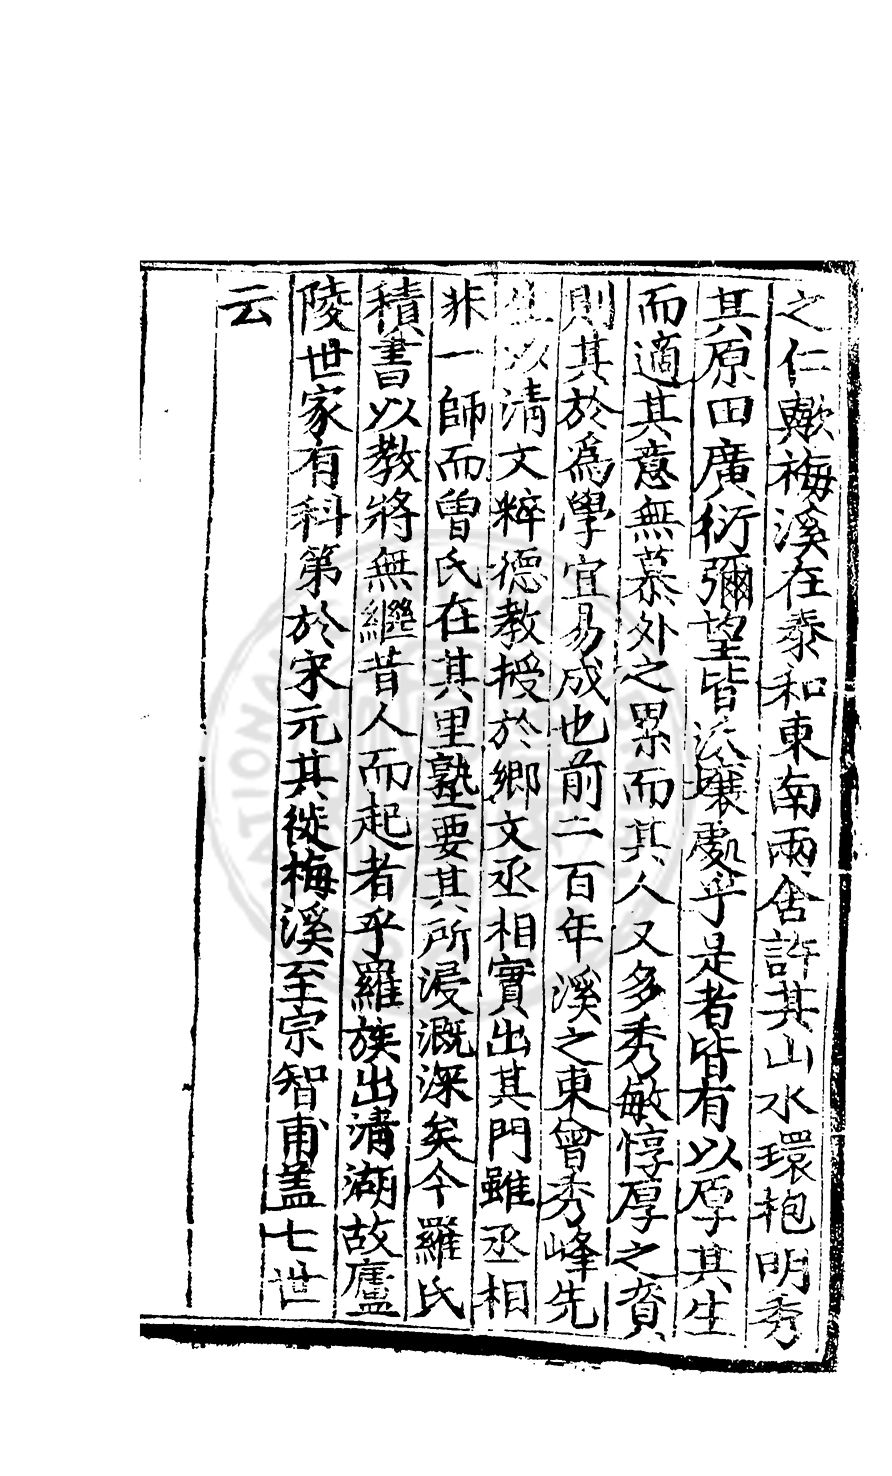 之仁歟梅溪在泰和東南兩舍許其山水環抱明秀
其原田廣衍彌望皆沃壤處乎是者皆有以厚其生
而適其意無慕外之累而其人又多秀敏惇厚之資
則其於爲學宜易成也前二百年溪之東曾秀峰先
生以清文粹德教授於鄉文丞相實出其門雖丞相
非一師而曾氏在其里塾要其所浸漑深矣今羅氏
積書以教將無繼昔人而起者乎羅族出溝湖故廬
陵世家有科第於宋元其徙梅溪至宗智甫盖七世
云